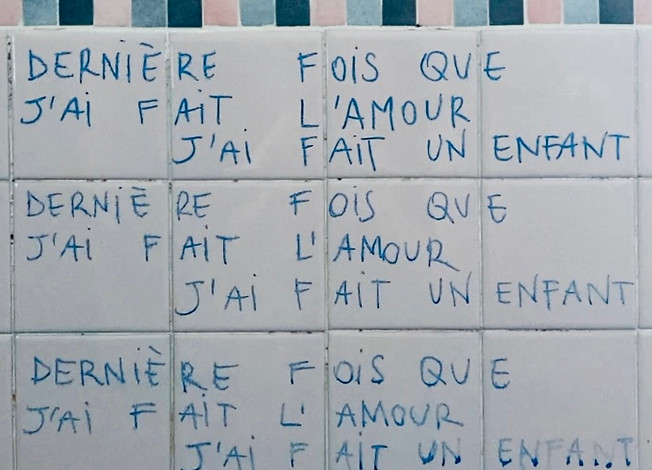 DERNIÈRE FOIS QUE
J'AI FAIT L'AMOUR
J'AI FAIT UN ENFANT
DERNIÈRE FOIS QUE
J'AI FAIT L'AMOUR
J'AI FAIT UN ENFANT
DERNIÈRE FOIS QUE
J'AI FAIT L'AMOUR
J'AI FAIT UN ENFANT